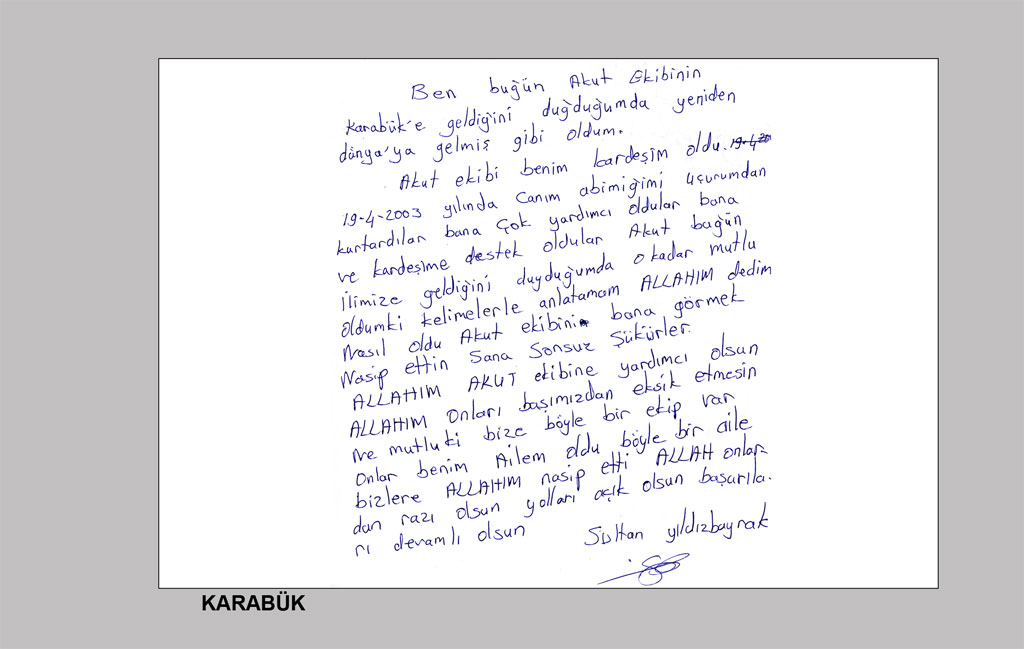 Ben bugün Akut Ekibinin
Karabük'e geldiğini duğduğumda yeniden
dünya'ya gelmiş gibi oldum.
Akut ekibi benim kardeşim oldu. 19-4-20
19-4-2003 yılında Canım abimiğimi uçurumdan
kurtardılar bana Çok yardımcı oldular bana
ve kardeşime destek oldular Akut bugün
ilimize geldiğini duyduğumda o kadar mutlu
oldumki kelimelerle anlatamam ALLAHIM dedim
Nasıl oldu Akut ekibini bana görmek
Nasip ettin Sana Sonsuz Şükürler.
ALLAHIM AKUT ekibine yardımcı olsun
ALLAHIM Onları başımızdan eksik etmesin
Ne mutluki bize böyle bir ekip var
Onlar benim Ailem oldu böyle bir aile
bizlere ALLAHIM nasip etti ALLAH onlar-
dan razı olsun yolları açık olsun başarıla.
rı devamlı olsun
Sultan yıldızbayrak
KARABÜK